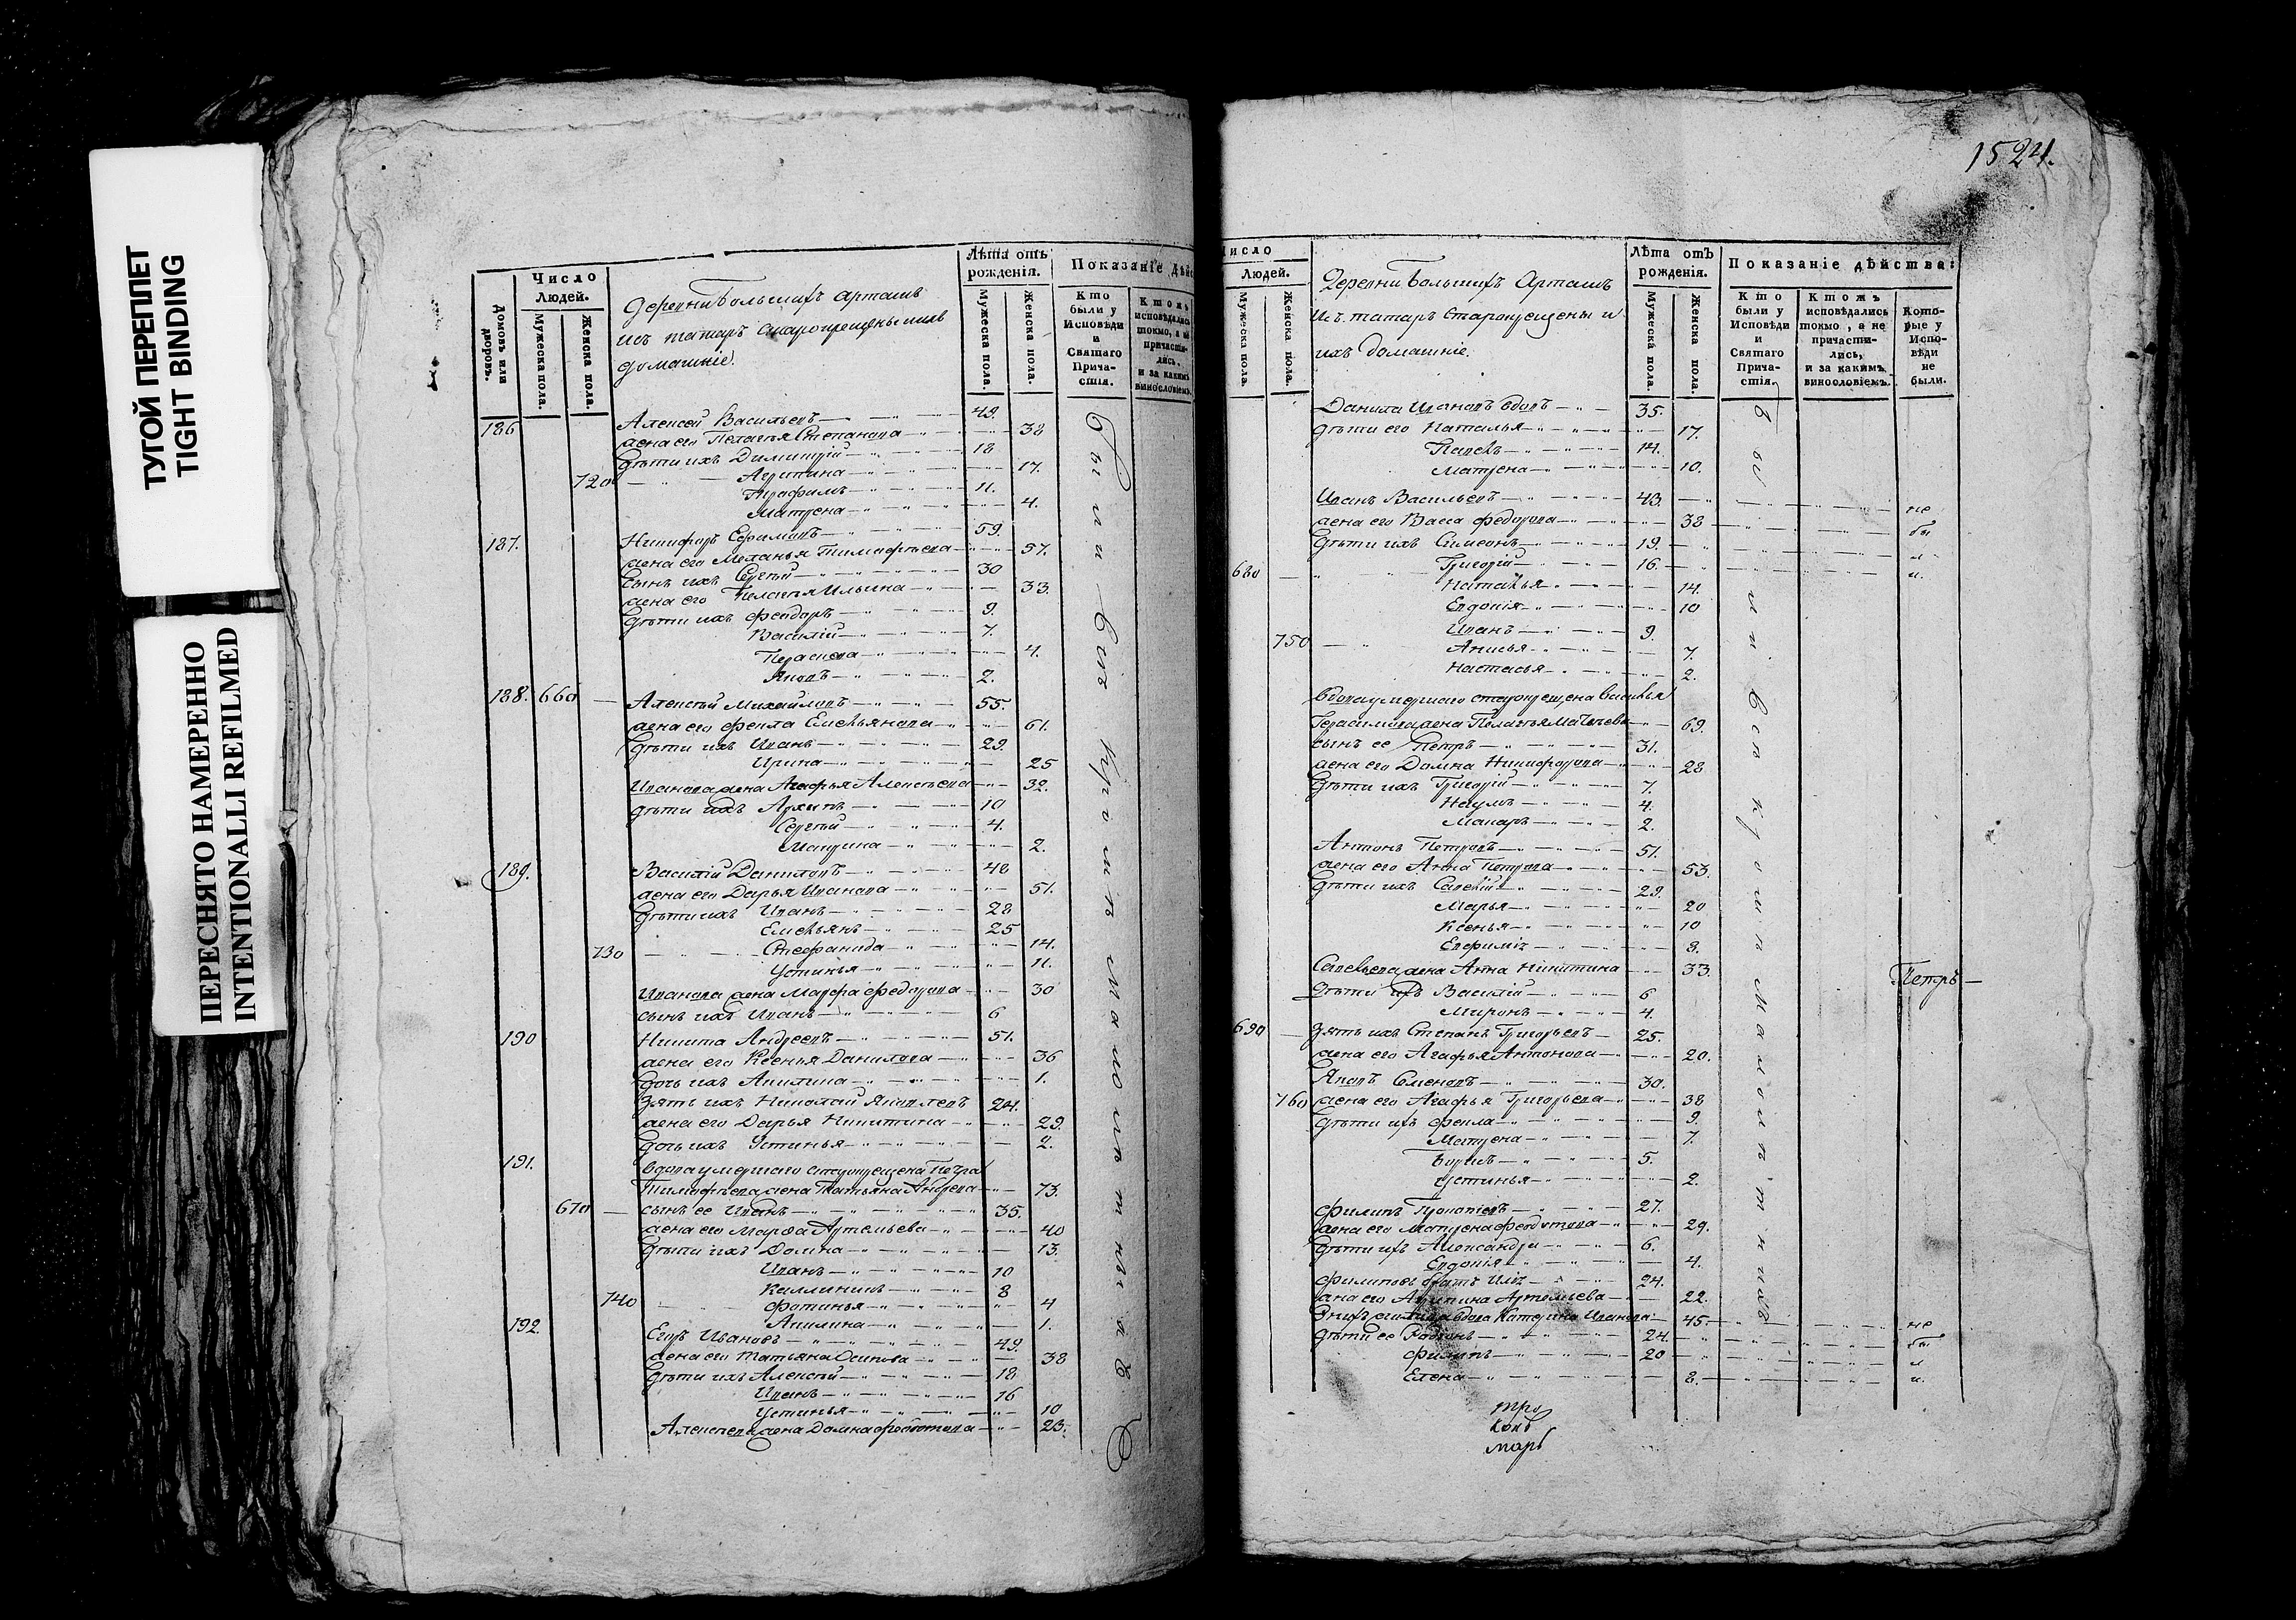 ТУГОЙ ПЕРЕПЛЕТ
TIGHT BINDING
ПЕРЕСНЯТО НАМЕРЕННО
INTENTIONALLI REFILMED
Домовъ или дворовъ.
Число
Людей.
Мужеска пола.
Женска пола.
Деревни Большихъ Арташъ
изъ татаръ старокрещены и ихъ
домашніе.
Лѣта отъ
рожденія.
Мужеска пола.
Женска пола.
Показаніе дѣйс
Кто
были у
Исповѣди
и
Святаго
Прича-
стія.
Ктожъ
исповѣдались
токмо, а не
причасти-
лись,
и за какимъ
винословіемъ.
186 Алексей Васильевъ 49.
жена его Пелагья Степанова 38
дѣти ихъ Димитрій 18
720 Агрипина 17.
Трофимъ 11.
Матрена 4.
187. Никифоръ Ефимовъ 59.
жена его Меланья Тимофѣева 57.
сынъ ихъ Сергѣй 30
жена его Пелагѣя Ильина 33.
дѣти ихъ Феодоръ 9.
Василій 7.
Пераскева 4.
Яковъ 2.
188. 660 Алексѣй Михайловъ 55.
жена его Фекла Емельянова 61.
дѣти ихъ Иванъ 29.
Ирина 25
Иванова жена Агафья Алексѣева 32.
дѣти ихъ Архипъ 10
Сергѣй 4.
2.
189. Василій Даниловъ 48
жена его Дарья Иванова 51.
дѣти ихъ Иванъ 28
Емельянъ 25
730 Стефанида 14.
Устинья 11.
Иванова жена Марфа Федорова 30
сынъ ихъ Иванъ 6
190 Никита Андреевъ 51.
жена его Ксенья Данилова 36
дочь ихъ Акилина 1.
зять ихъ Николай Яковлевъ 24.
жена его Дарья Никитина 29.
дочь ихъ Устинья 2.
191. вдова умершаго старокрещена Петра
Тимофѣева жена Татьяна Андреева 73.
670 сынъ ее Иванъ 35.
жена его Марфа Артемьева 40
дѣти ихъ Домна 13.
Иванъ 10
Каллиникъ 8
740 Фотинья 4
Акилина 1.
192. Егоръ Ивановъ 49.
жена его Татьяна Осипова 38
дѣти ихъ Алексѣй 18
Иванъ 16
Устинья 10
Алексѣева жена Домна Федотова 23.
были вси
1524.
Число
Людей.
Мужеска пола.
Женска пола.
Деревни Большихъ Арташъ
Изъ татаръ старокрещены и
ихъ домашніе.
Лѣта отъ
рожденія.
Мужеска пола.
Женска пола.
Показаніе дѣйства:
Кто
были у
Исповѣди
и
Святаго
Прича-
стія.
Ктожъ
исповѣдались
токмо, а не
причасти-
лись,
и за какимъ
винословіемъ.
Кото-
рые у
Испо-
вѣди
не
были.
Данила Ивановъ вдовъ 35.
дѣти его Наталья 17.
Павелъ 14.
Матрена 10.
Иванъ Васильевъ 43.
жена его Васса Федорова 38
дѣти ихъ Симеонъ 19.
680 Григорій 16.
Наталья 14.
Евдокія 10
Иванъ 9.
750 Анисья 7.
Настасья 2.
не бы ли
вдова умершаго старокрещена Василья
Герасимова жена Пелагья Матвѣева 69.
сынъ ее Петръ 31.
жена его Домна Никифорова 28
дѣти ихъ Григорій 7.
Наумъ 4.
Макаръ 2.
Антонъ Петровъ 51.
жена его Анна Петрова 53.
дѣти ихъ Савелій 29.
Марья 20
Ксенья 10
Евфимія 8.
Савельева жена Анна Никитина 33.
дѣти ихъ Василій 6
Миронъ 4.
Петръ
690 зять ихъ Степанъ Григорьевъ 25.
жена его Агафья Антонова 20.
Яковъ Семеновъ 30.
760 жена его Агафья Григорьева 38
дѣти ихъ Фекла 9.
Матрена 7.
Борисъ 5.
Устинья 2.
Филипъ 27.
жена его Матрена Федотова 29.
дѣти ихъ Александръ 6.
Евдокія 4.
Филиповъ братъ Илія 24.
жена его Агрипина Артемьева 22.
вдова Катерина Иванова 45
дѣти ее Родіонъ 24.
Филипъ 20
Елена 8.
не бы ли
были вси кромѣ малолѣтнихъ